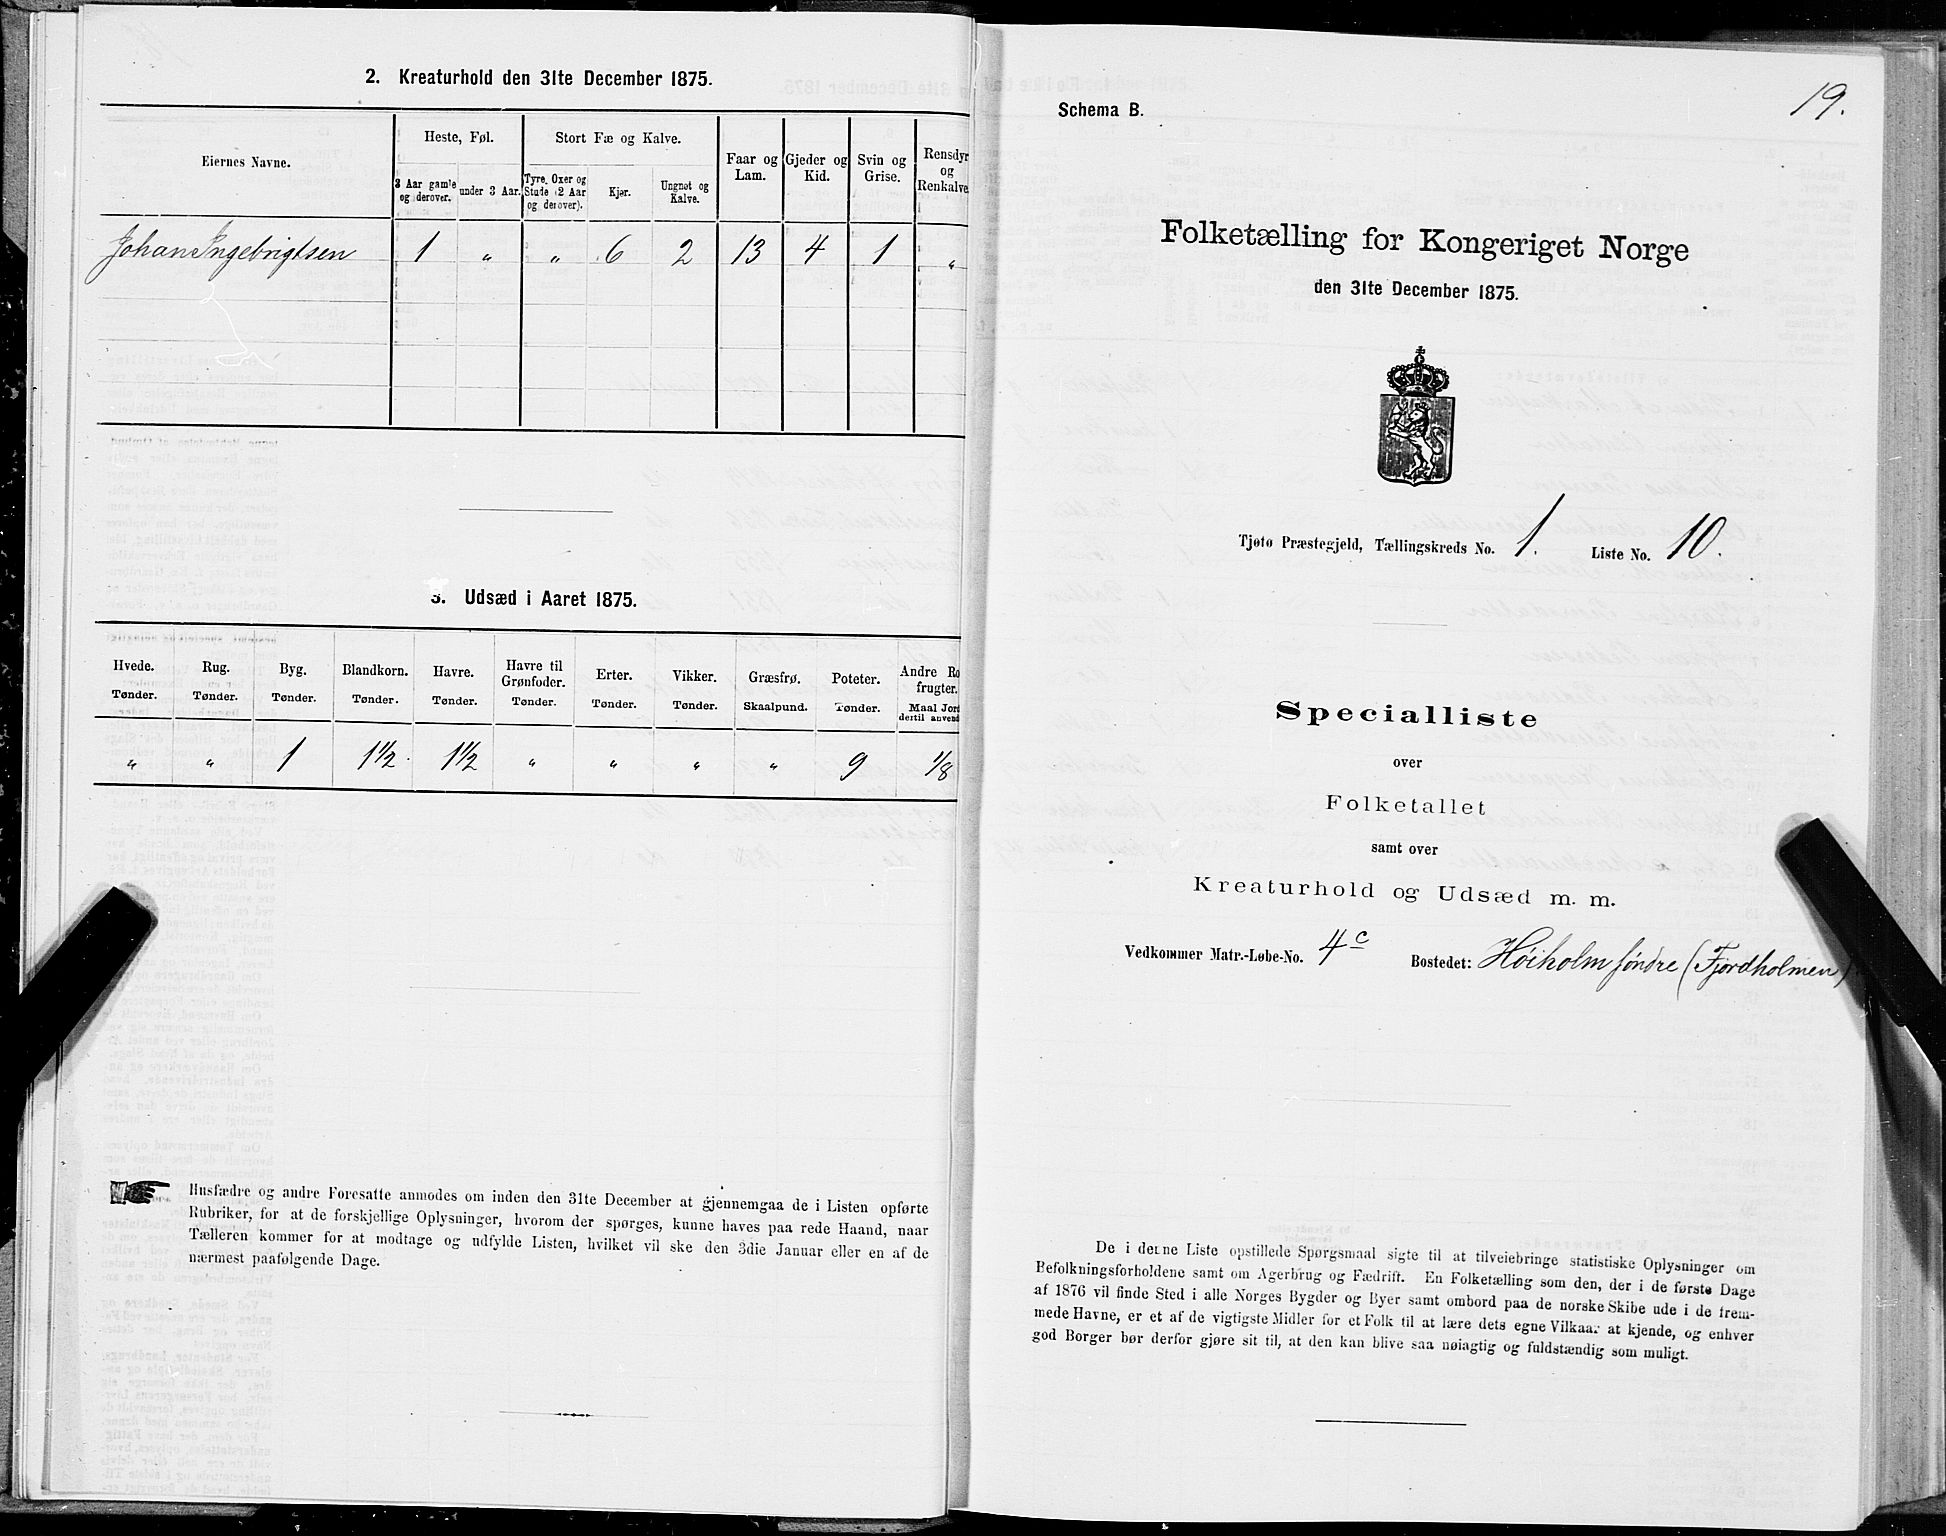 2. Kreaturhold den 31te December 1875.
Eiernes Navne.
Heste, Føl.
Stort Fæ og Kalve.
Faar og
Lam.
Gjeder og
Kid.
Svin og
Grise.
Rensdyr
og
Renkalve
3 Aar gamle
og derover.
under 3 Aar.
Tyre, Oxer og
Stude (2 Aar
og derover).
Kjør.
Ungnøt og
Kalve.
Johan Ingebrigtsen 1 " " 6 2 13 4 1 "
3. Udsæd i Aaret 1875.
Hvede. Rug. Byg. Blandkorn. Havre. Havre til Grønfoder. Erter. Vikker. Græsfrø. Poteter. Andre Ro frugter.
Tønder. Tønder. Tønder. Tønder. Tønder. Tønder. Tønder. Tønder. Skaalpund. Tønder. Maal Jord dertil anvend
" " 1 1 1/2. 1 1/2 " " " " 9 1/8
Husfædre og andre Foresatte anmodes om inden den 31te December at gjennemgaa de i Listen opførte
Rubriker, for at de forskjellige Oplysninger, hvorom der spørges, kunne haves paa rede Haand, naar
Tælleren kommer for at modtage og udfylde Listen, hvilket vil ske den 3die Januar eller en af de
nærmest paafølgende Dage.
19.
Schema B.
Folketælling for Kongeriget Norge
den 31te December 1875.
Tjøtø Præstegjeld, Tællingskreds No. 1. Liste No. 10.
Specialliste
over
Folketallet
samt over
Kreaturhold og Udsæd m. m.
Vedkommer Matr.-Løbe-No. 4c Bostedet: Høiholm søndre (Fjordholmen)
De i denne Liste opstillede Spørgsmaal sigte til at tilveiebringe statistiske Oplysninger om
Befolkningsforholdene samt om Agerbrug og Fædrift. En Folketælling som den, der i de første Dage
af 1876 vil finde Sted i alle Norges Bygder og Byer samt ombord paa de norske Skibe ude i de frem-
mede Havne, er et af de vigtigste Midler for et Folk til at lære dets egne Vilkaar at kjende, og enhver
god Borger bør derfor gjøre sit til, at den kan blive saa nøiagtig og fuldstændig som muligt.